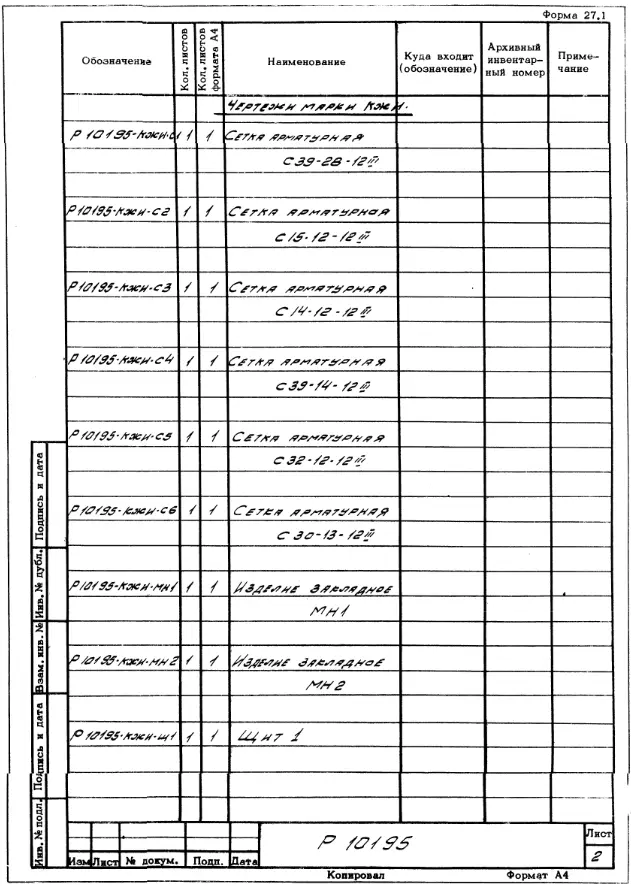 Форма 27.1
Обозначение Кол. листов Кол. листов формата А4 Наименование Куда входит (обозначение) Архивный инвентарный номер Примечание
Чертежи марки КЖИ.
Р 10195-КЖИ-С1 1 1 Сетка арматурная
С 39-28-12 III
Р10195-КЖИ-С2 1 1 Сетка арматурная
С 15-12-12 III
Р10195-КЖИ-С3 1 1 Сетка арматурная
С 14-12-12 III
Р10195-КЖИ-С4 1 1 Сетка арматурная
С 39-14-12 III
Р10195-КЖИ-С5 1 1 Сетка арматурная
С 32-12-12 III
Р10195-КЖИ-С6 1 1 Сетка арматурная
С 30-13-12 III
Р10195-КЖИ-МН1 1 1 Изделие закладное
МН1
Р10195-КЖИ-МН2 1 1 Изделие закладное
МН2
Р10195-КЖИ-Щ1 1 1 Щит 1
Инв. № подл. Подпись и дата Взам. инв. № Инв. № дубл. Подпись и дата
Р 10195
Лист
2
Изм Лист № докум. Подп. Дата
Копировал Формат А4